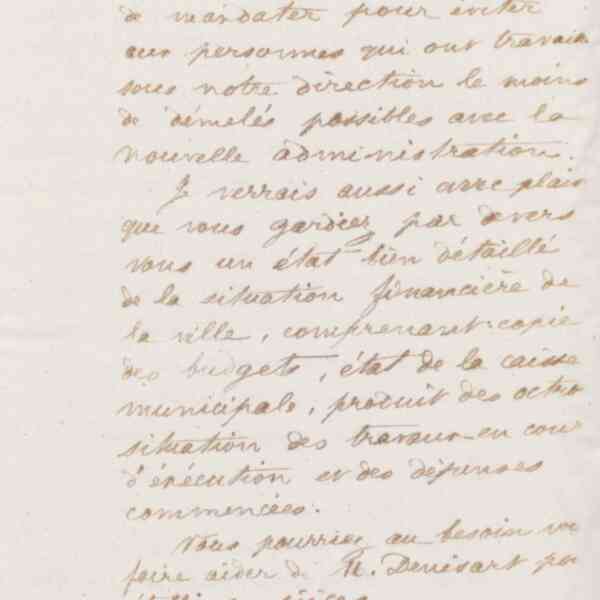 de mandater pour éviter
aux personnes qui ont travaill
sous notre direction le moins
de démelés possibles avec la
nouvelle administration.
Je verrais aussi avec plaisi
que vous gardiez par devers
vous un état bien détaillé
de la situation financière de
la ville, comprenant copie
des budgets, état de la caisse
municipale, produit des octro
situation des travaux en cour
d'éxécution et des dépenses
commencées.
Vous pourriez au besoin vo
faire aider de M. Denisart po